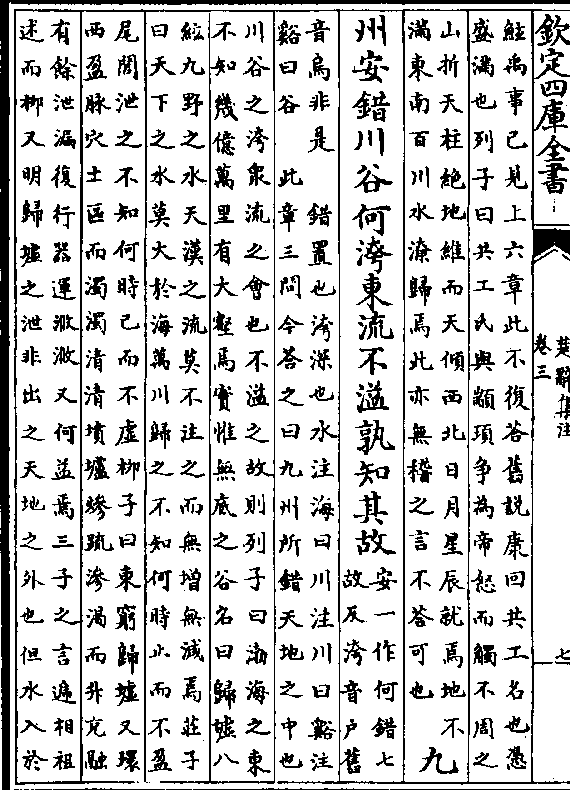 欽定四庫全書
楚辭集注
卷三
七
鮌禹事已見上六章此不復答舊說康回共工名也憑
盛滿也列子曰共工氏與顓頊争為帝怒而觸不周之
山折天柱絶地維而天傾西北日月星辰就焉地不
滿東南百川水潦歸焉此亦無稽之言不答可也
九
州安錯川谷何洿東流不溢孰知其故
安一作何錯七
故反洿音戶舊
音烏非是　錯置也洿深也水注海曰川注川曰谿注
谿曰谷　此章三問今答之曰九州所錯天地之中也
川谷之洿衆流之會也不溢之故則列子曰渤海之東
不知幾億萬里有大壑焉實惟無底之谷名曰歸墟八
紘九野之水天漢之流莫不注之而無增無減焉莊子
曰天下之水莫大於海萬川歸之不知何時止而不盈
尾閭泄之不知何時已而不虛柳子曰東窮歸墟又環
西盈脉穴土區而濁濁清清墳壚燥疏滲渴而升充融
有餘泄漏復行器運浟浟又何溢焉三子之言遞相祖
述而柳又明歸墟之泄非出之天地之外也但水入於